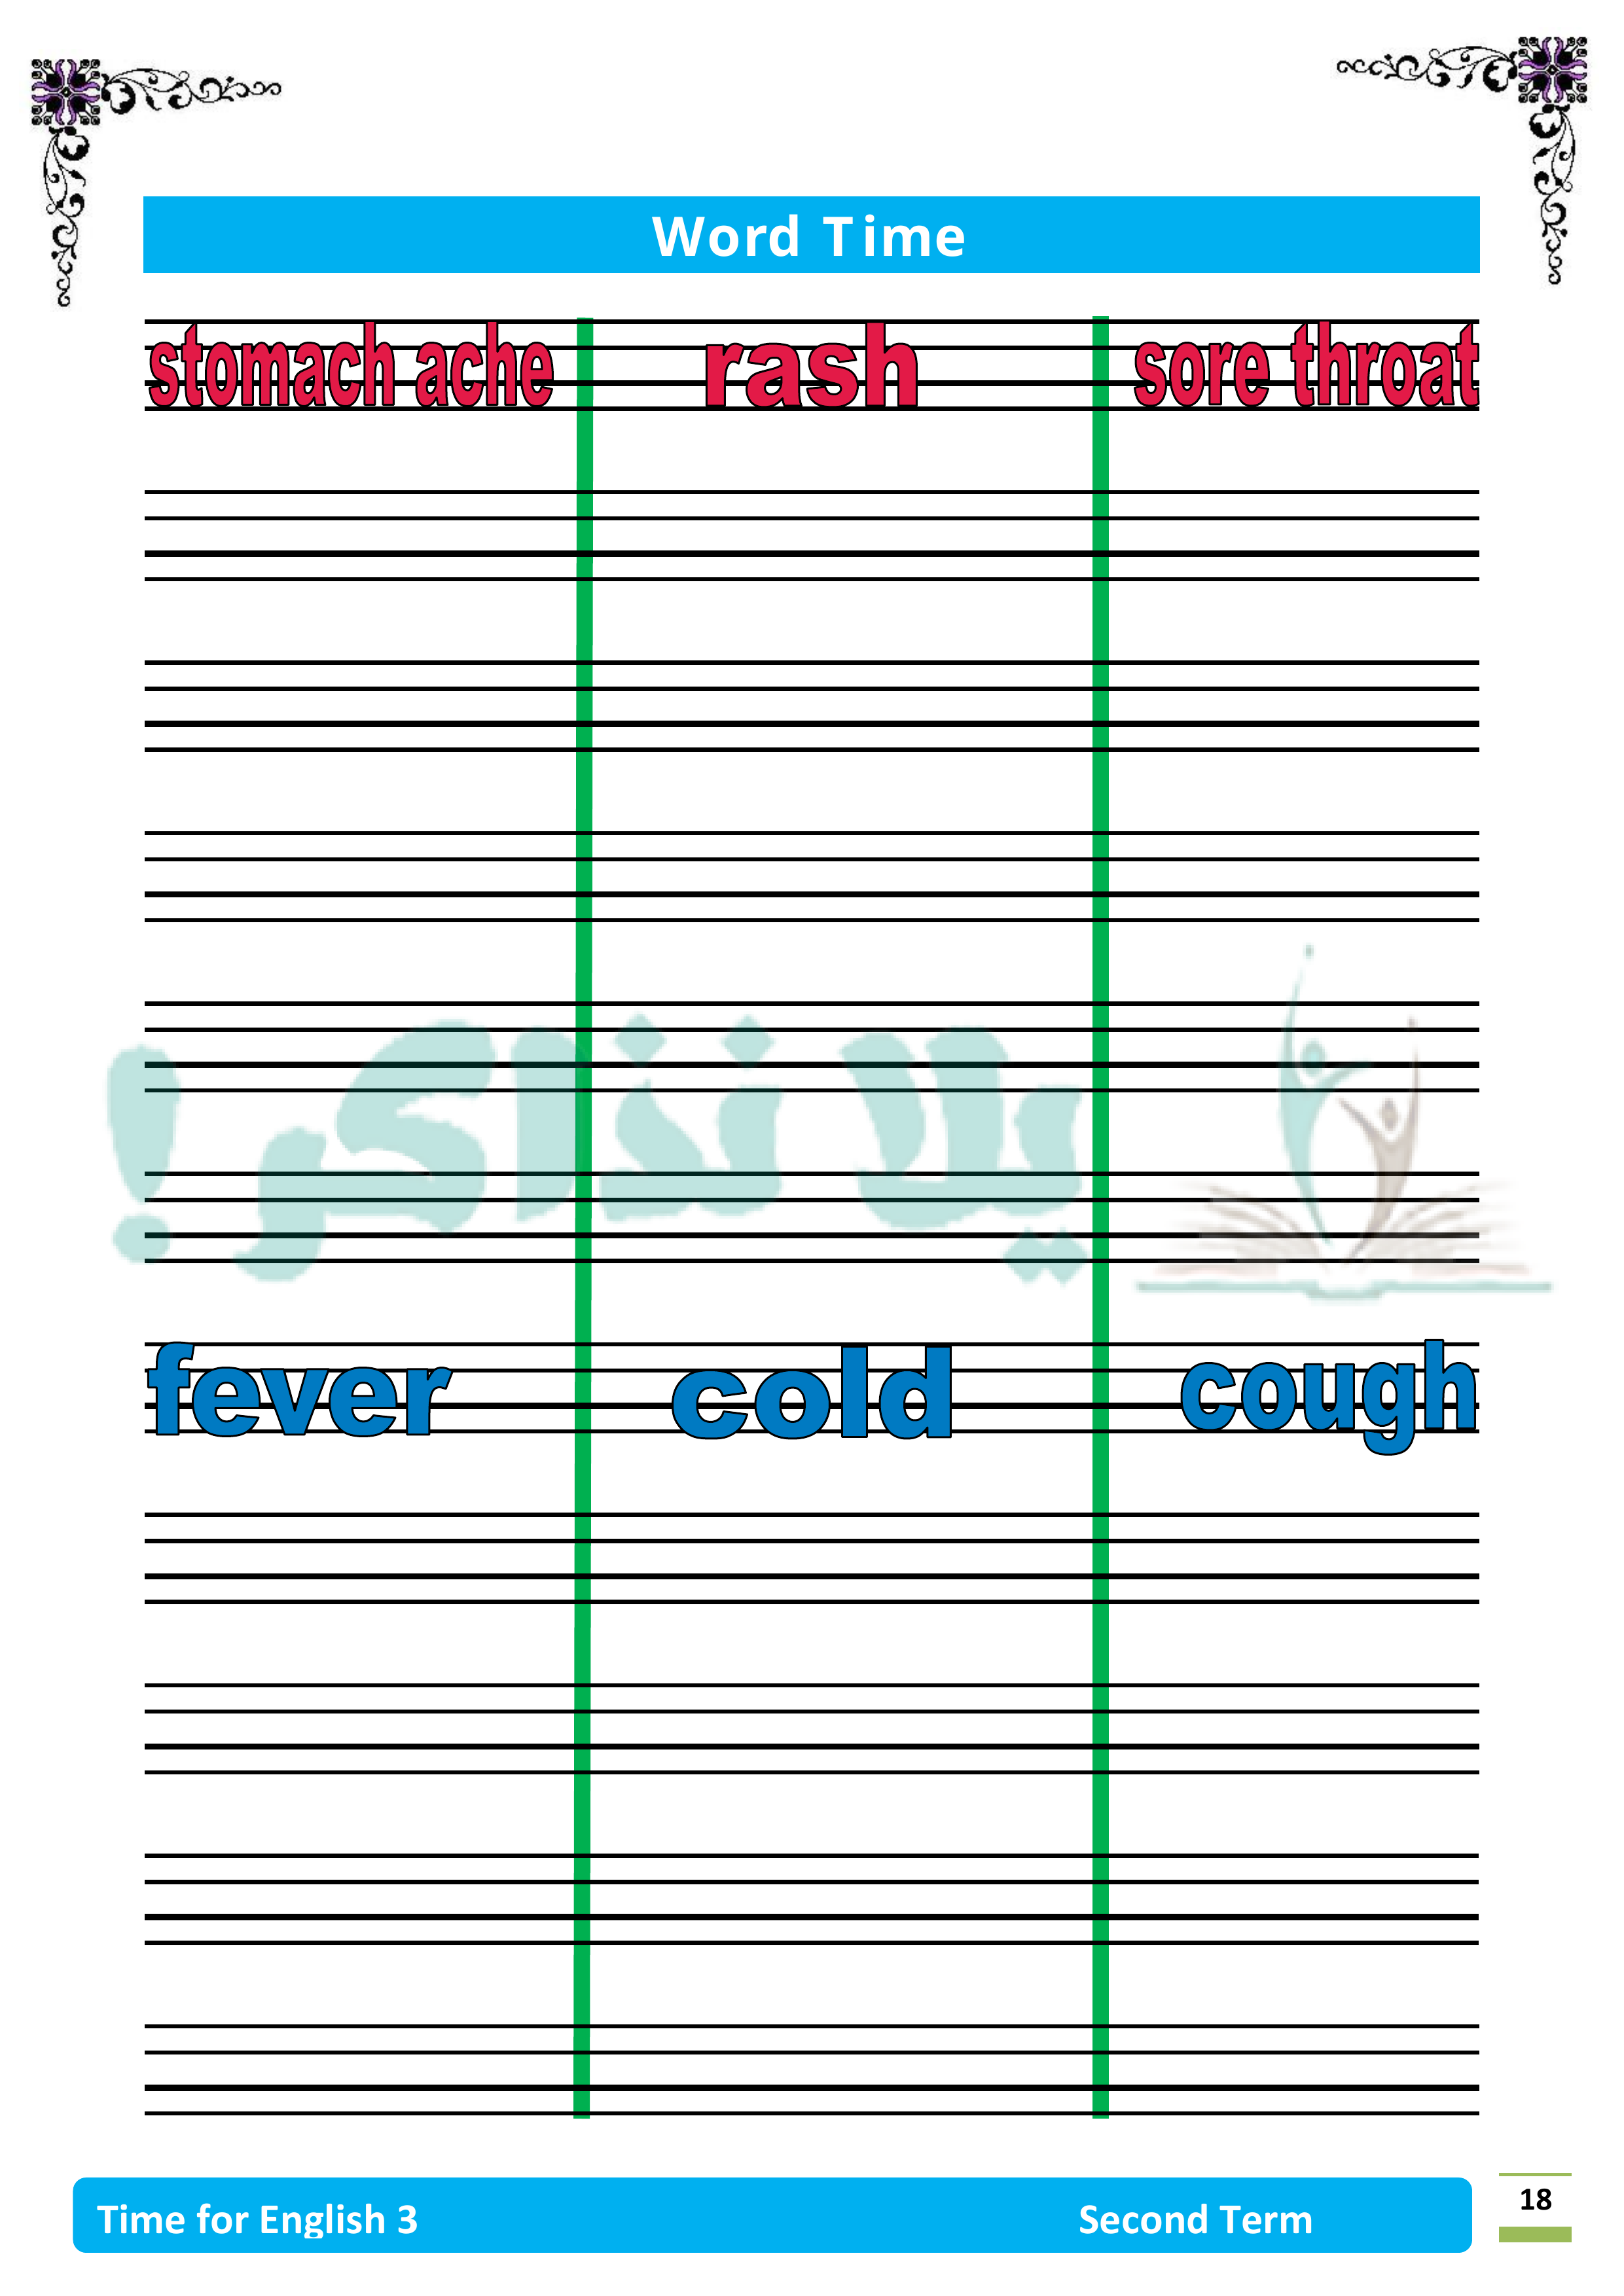 Word Time
stomach ache rash sore throat
يلا نذاكر !
fever cold cough
Time for English 3 Second Term 18